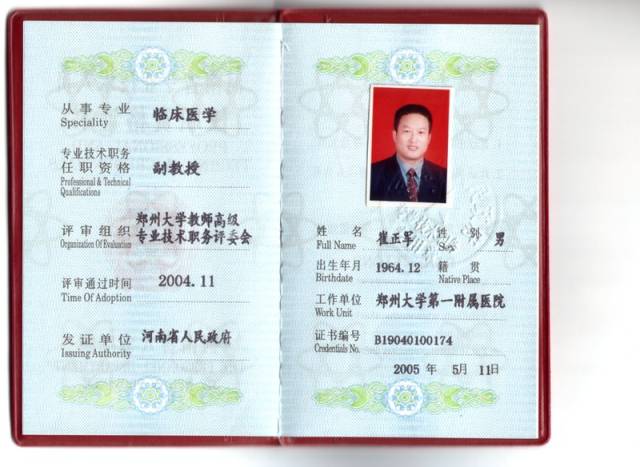 从事专业 临床医学
Speciality
专业技术职务
任职资格 副教授
Professional & Technical
Qualifications
评审组织 郑州大学教师高级
Organization Of Evaluation 专业技术职务评委会
评审通过时间 2004.11
Time Of Adoption
发证单位 河南省人民政府
Issuing Authority
姓名 崔正军 性别 男
Full Name Sex
出生年月 1964.12 籍贯
Birthdate Native Place
工作单位 郑州大学第一附属医院
Work Unit
证书编号 B19040100174
Credentials No.
2005 年 5月 11日